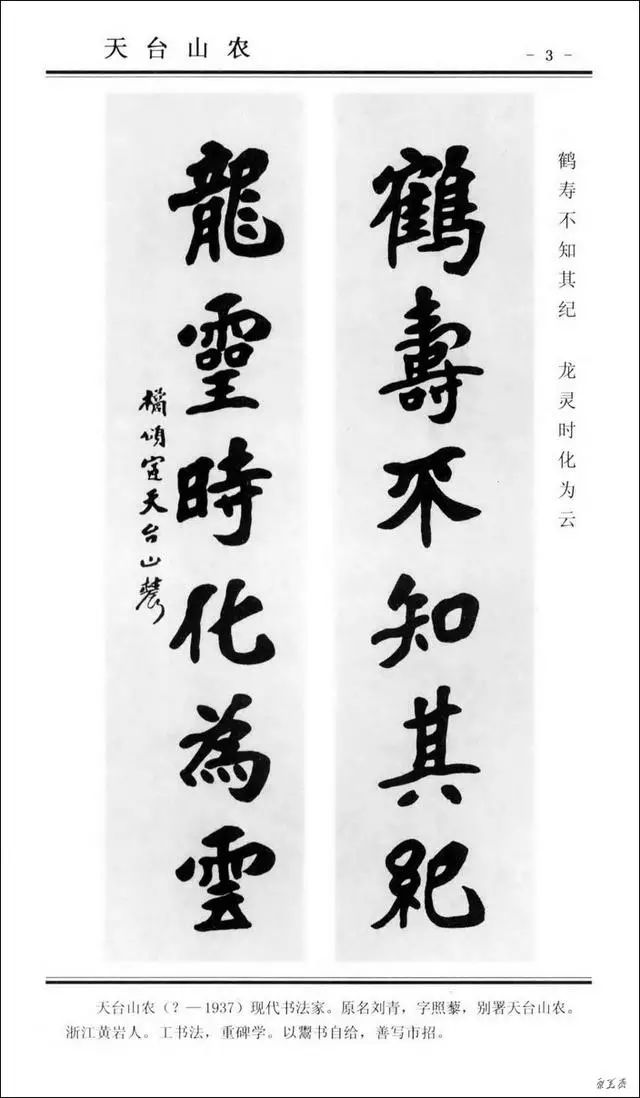 天台山农
- 3 -
鹤寿不知其纪 龙灵时化为云
鶴壽不知其紀
龍靈時化為雲
橘頌室天台山農
天台山农（？—1937）现代书法家。原名刘青，字照藜，别署天台山农。
浙江黄岩人。工书法，重碑学。以鬻书自给，善写市招。